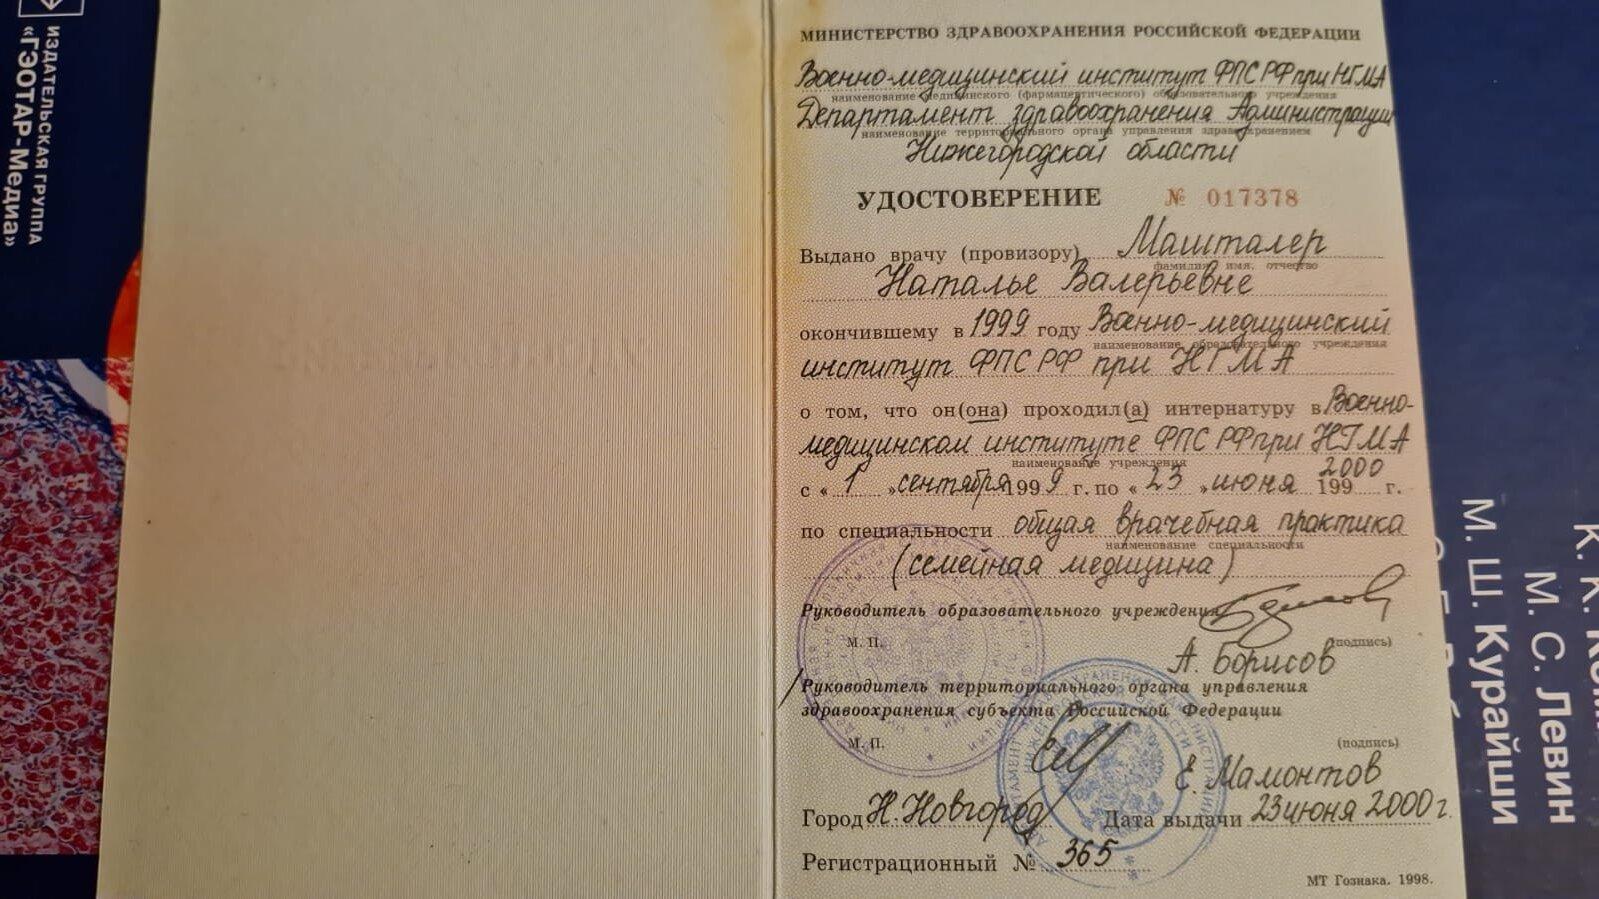 ИЗДАТЕЛЬСКАЯ ГРУППА
«ГЭОТАР-Медиа»
МИНИСТЕРСТВО ЗДРАВООХРАНЕНИЯ РОССИЙСКОЙ ФЕДЕРАЦИИ
Военно-медицинский институт ФПС РФ при НГМА
наименование медицинского (фармацевтического) образовательного учреждения
Департамент здравоохранения Администрации
наименование территориального органа управления здравоохранением
Нижегородской области
УДОСТОВЕРЕНИЕ № 017378
Выдано врачу (провизору) Машталер
фамилия, имя, отчество
Наталье Валерьевне
окончившему в 1999 году Военно-медицинский
наименование образовательного учреждения
институт ФПС РФ при НГМА
о том, что он(она) проходил(а) интернатуру в Военно-
медицинском институте ФПС РФ при НГМА
наименование учреждения
с « 1 » сентября 1999 г. по « 23 » июня 199 2000 г.
по специальности общая врачебная практика
наименование специальности
(семейная медицина)
Руководитель образовательного учреждения
М. П. (подпись)
А. Борисов
Руководитель территориального органа управления
здравоохранения субъекта Российской Федерации
М. П. (подпись)
Е. Мамонтов
Город Н. Новгород Дата выдачи 23 июня 2000 г.
Регистрационный № 365
МТ Гознака. 1998.
М. С. Левин
М. Ш. Курайши